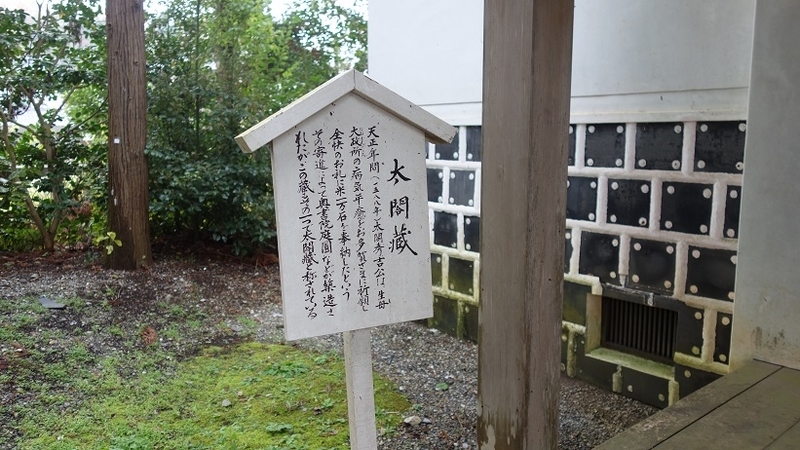 太閤蔵
天正年間（一五八八年）太閤秀吉公は、生母
大政所の病気平癒をお多賀さまに祈願し
全快のお礼に米一万石を奉納したという
その寄進によって奥書院庭園などが築造さ
れたがこの蔵もその一つで太閤蔵と称されている